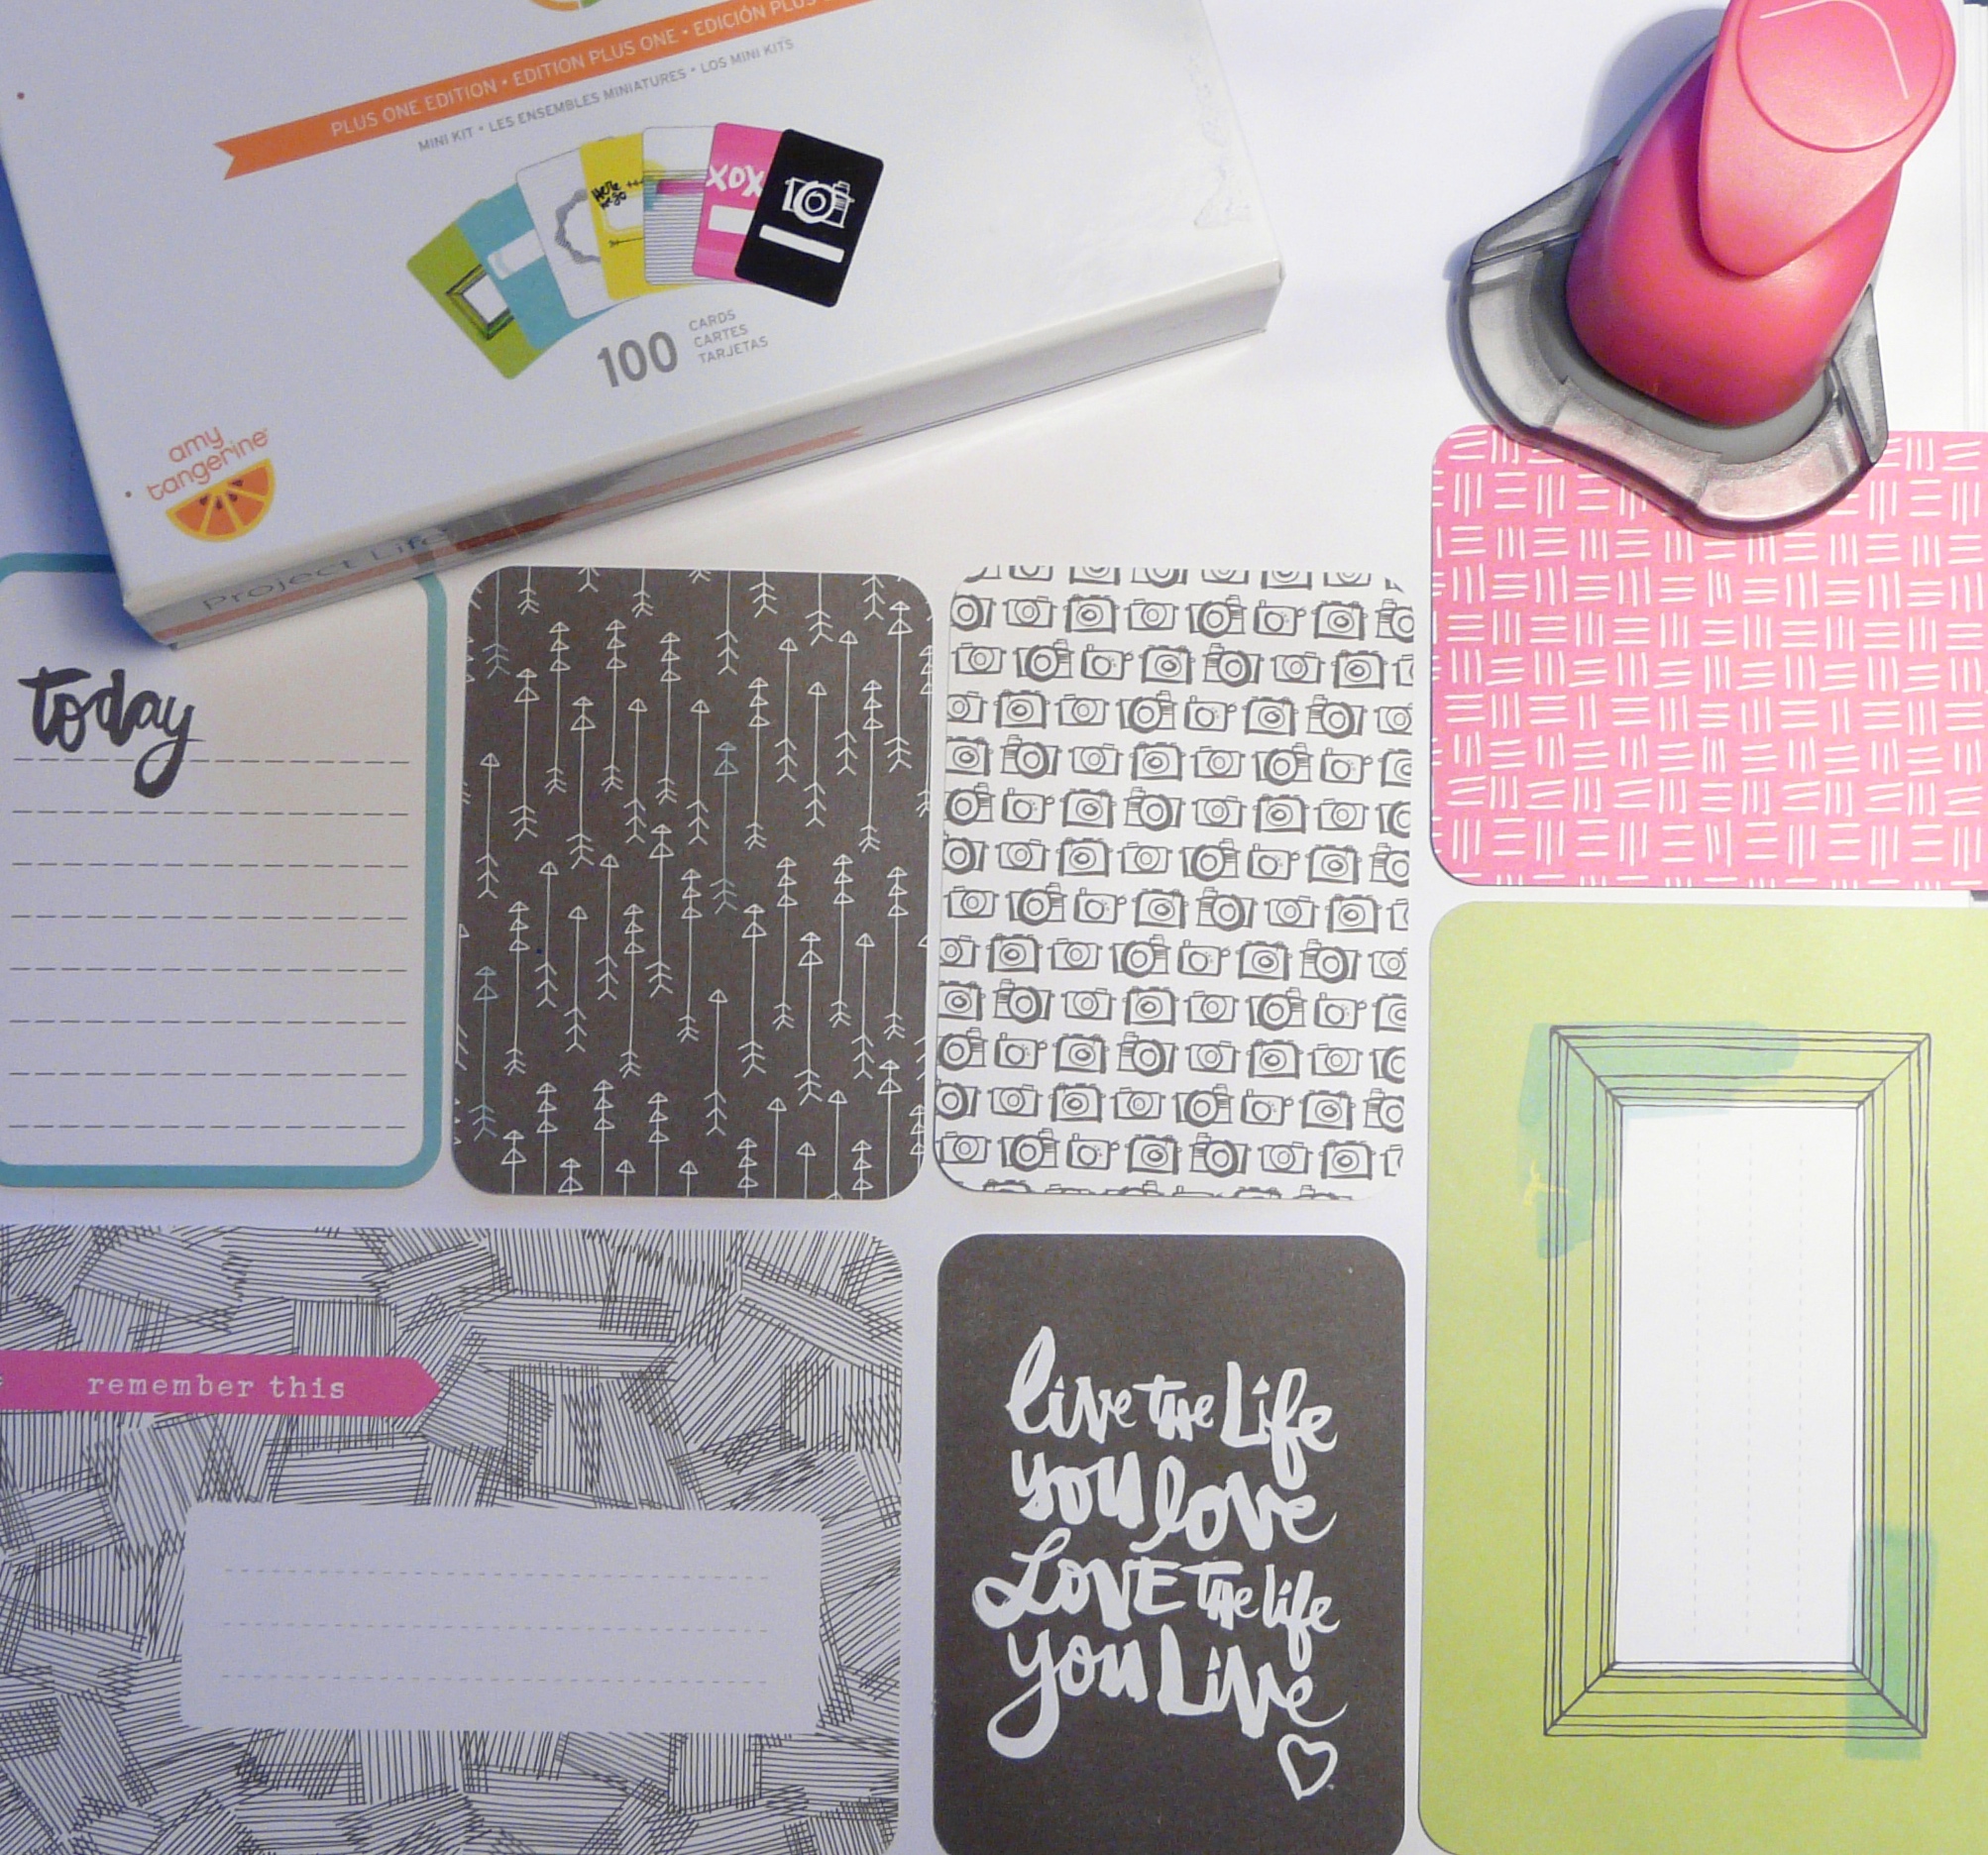 PLUS ONE EDITION • EDITION PLUS ONE • EDICIÓN PLUS
MINI KIT • LES ENSEMBLES MINIATURES • LOS MINI KITS
Here
we go
XOX
100
CARDS
CARTES
TARJETAS
amy
tangerine
Project Life
today
remember this
live the Life
you love
Love the life
you Live